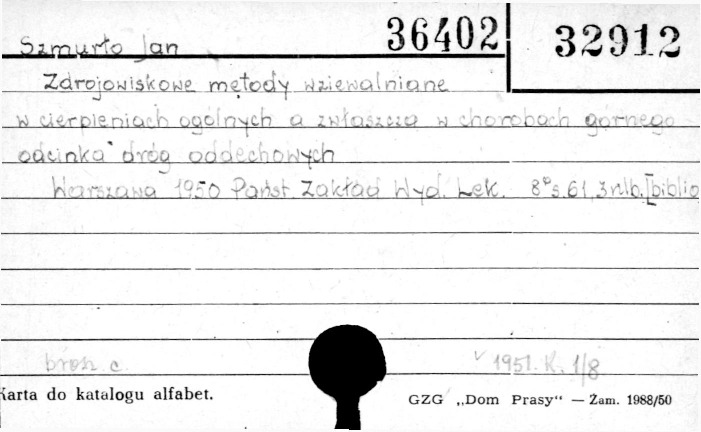 Szmurło Jan 36402 32912
Zdrojowiskowe metody wziewalniane
w cierpieniach ogólnych a zwłaszcza w chorobach górnego
odcinka dróg oddechowych
Warszawa 1950 Państ. Zakład Wyd. Lek. 8° s. 61, 3 nlb. [biblio
brosz. c. v 1951. K. 1/8
Karta do katalogu alfabet. GZG „Dom Prasy“ — Żam. 1988/50